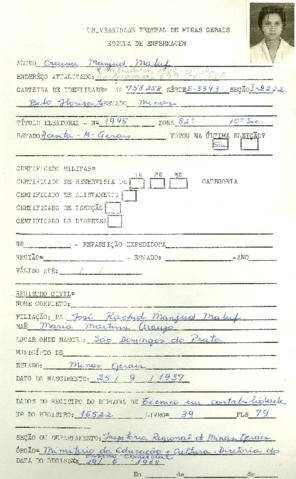 UNIVERSIDADE FEDERAL DE MINAS GERAIS
ESCOLA DE ENFERMAGEM
ALUNO Creusa Manjud Maluf
ENDEREÇO ATUALIZADO:
CARTEIRA DE IDENTIDADE Nº 758258 SÉRIE E-3393 SEÇÃO I-2222
Belo Horizonte ESTADO Minas
TÍTULO ELEITORAL - Nº 1948 ZONA 82ª 10ª Sec.
ESTADO M. Gerais VOTOU NA ÚLTIMA ELEIÇÃO?
Sim
CERTIFICADO MILITAR:
1ª 2ª 3ª
CERTIFICADO DE RESERVISTA DE CATEGORIA
CERTIFICADO DE ALISTAMENTO
CERTIFICADO DE ISENÇÃO
CERTIFICADO DE DISPENSA
Nº - REPARTIÇÃO EXPEDIDORA
REGIÃO= - ESTADO: - ANO
VÁLIDO ATÉ: / /
REGISTRO CIVIL=
NOME COMPLETO:
FILIAÇÃO: PAI José Rachid Manjud Maluf
MÃE Maria Martins Araujo
LUGAR ONDE NASCEU: São Domingos do Prata
MUNICÍPIO DE
ESTADO: Minas Gerais
DATA DO NASCIMENTO: 25 / 9 / 1937
DADOS DO REGISTRO DO DIPLOMA DE Técnico em contabilidade
Nº DO REGISTRO: 16522 LIVRO= 39 FLS 79
SEÇÃO OU DEPARTAMENTO: Inspetoria Regional de Minas Gerais
ÓRGÃO= Ministério da Educação e Cultura - Diretoria do
Ensino Comercial
DATA DO REGISTRO 19 / 6 / 1968
Nº de de